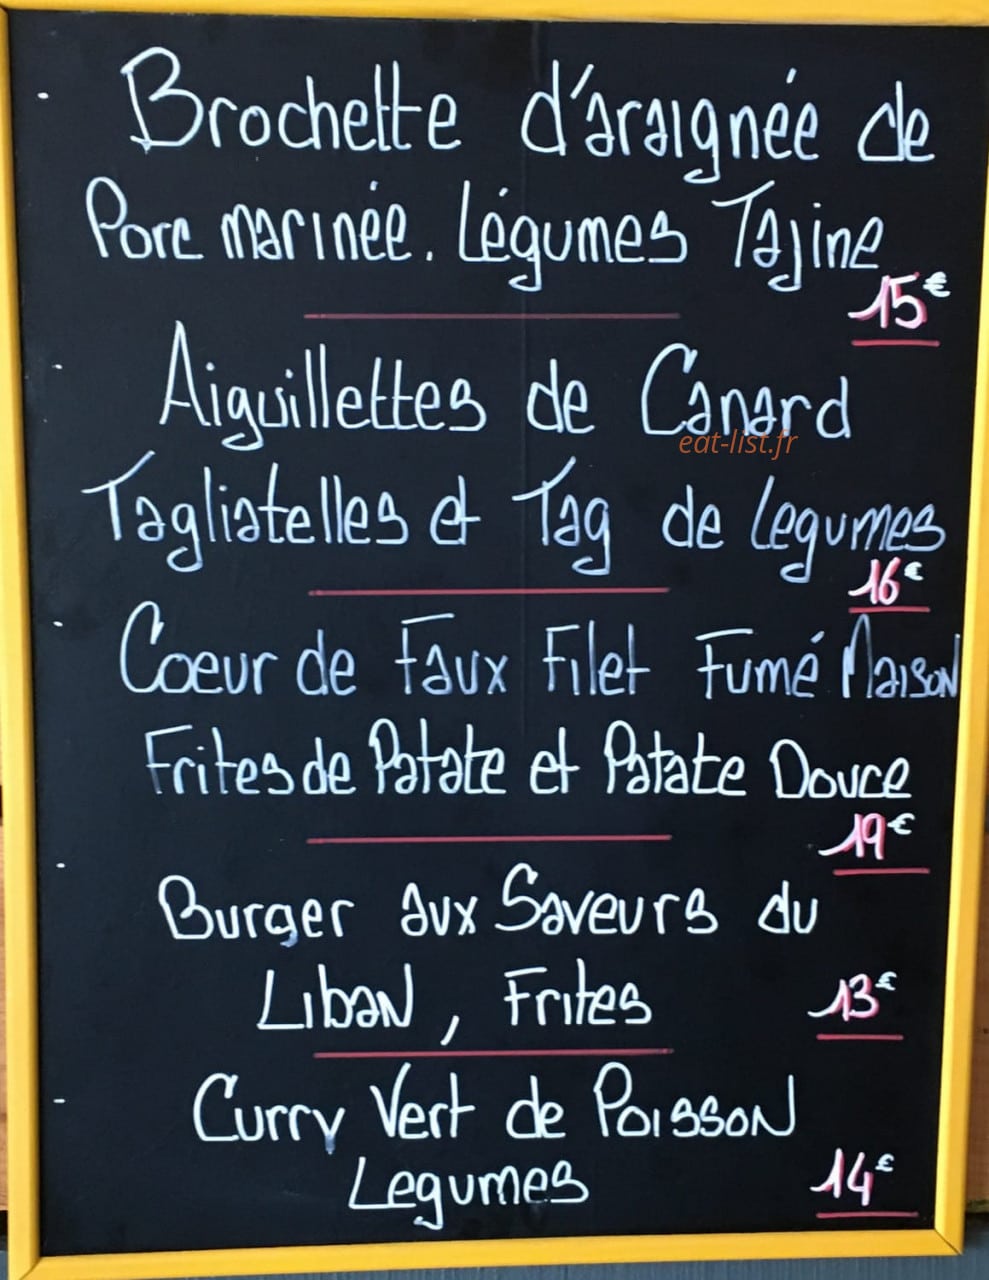 Brochette d'araignée de
Porc marinée. Légumes Tajine
15€
Aiguillettes de Canard
eat-list.fr
Tagliatelles et Tag de Legumes
16€
Coeur de Faux Filet Fumé Maison
Frites de Patate et Patate Douce
19€
Burger aux Saveurs du
Liban, Frites 13€
Curry Vert de Poisson
Legumes 14€